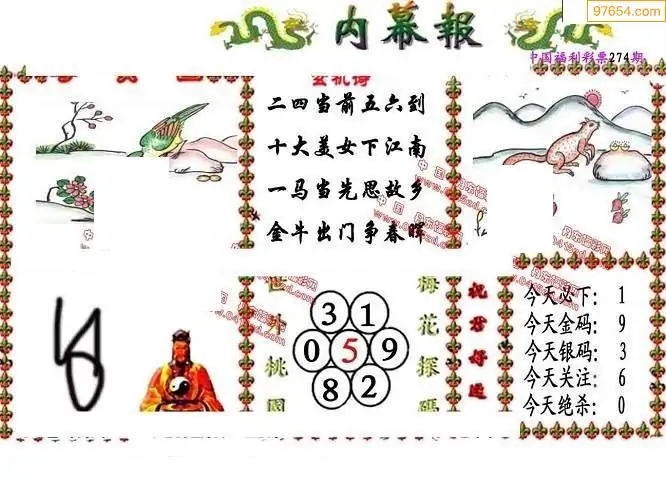 97654.com
内幕報
中国福利彩票274期
玄机诗
二四当前五六到
十大美女下江南
一马当先思故乡
金牛出门争春晖
世外桃園
3 1
0 5 9
8 2
梅花探码
祝君好运
今天必下: 1
今天金码: 9
今天银码: 3
今天关注: 6
今天绝杀: 0